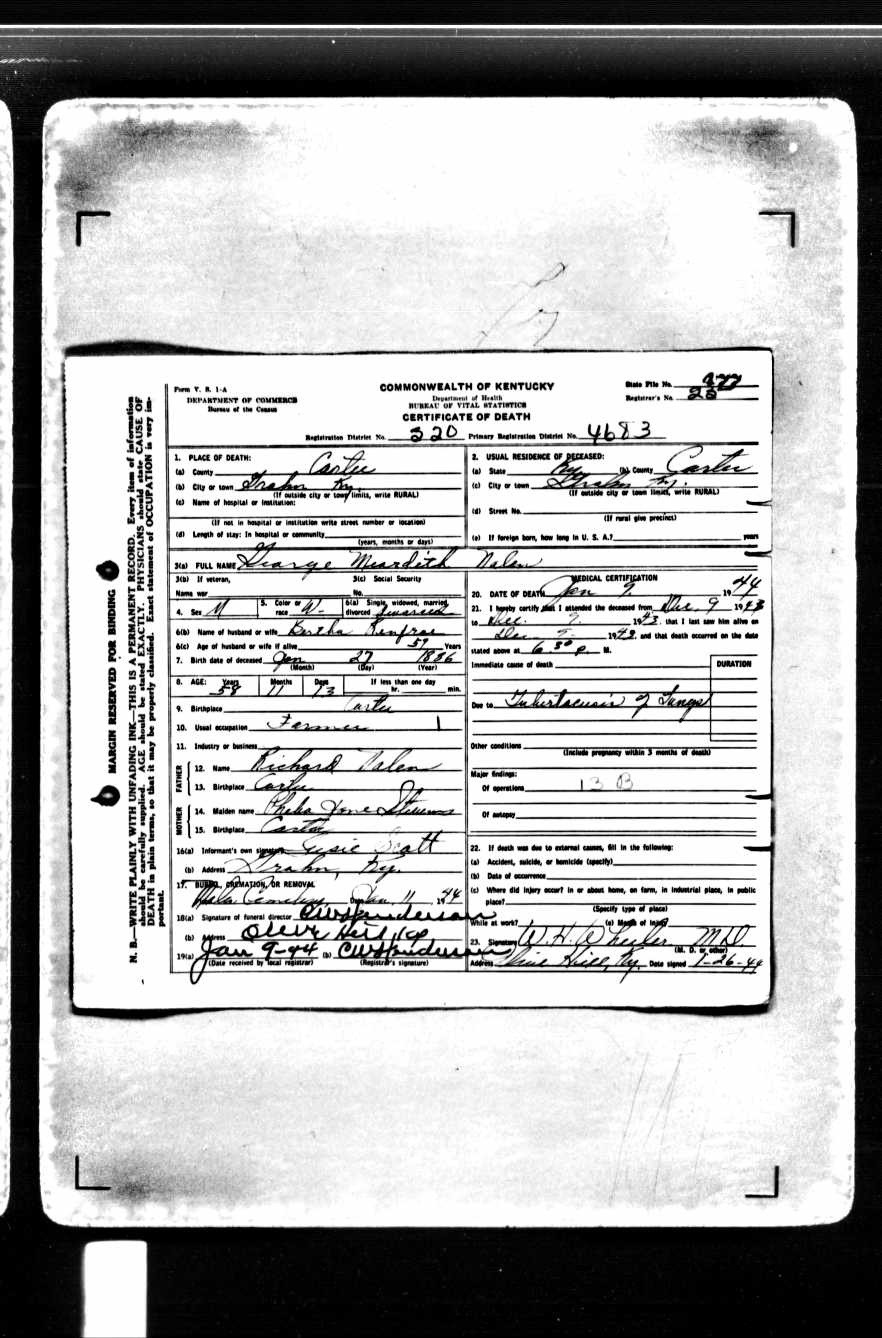 Form V. S. 1-A
DEPARTMENT OF COMMERCE
Bureau of the Census
COMMONWEALTH OF KENTUCKY
Department of Health
BUREAU OF VITAL STATISTICS
CERTIFICATE OF DEATH
State File No. 277
Registrar's No. 25
Registration District No. 520 Primary Registration District No. 4683
1. PLACE OF DEATH:
(a) County Carter
(b) City or town Grahn Ky.
(If outside city or town limits, write RURAL)
(c) Name of hospital or institution:
(If not in hospital or institution write street number or location)
(d) Length of stay: In hospital or community
(years, months or days)
2. USUAL RESIDENCE OF DECEASED:
(a) State Ky (b) County Carter
(c) City or town Grahn Ky.
(If outside city or town limits, write RURAL)
(d) Street No.
(If rural give precinct)
(e) If foreign born, how long in U. S. A.? years
3(a) FULL NAME George Meardith
3(b) If veteran,
Name war
3(c) Social Security
No.
4. Sex M
5. Color or race W
6(a) Single, widowed, married, divorced
6(b) Name of husband or wife Bertha Renfroe
6(c) Age of husband or wife if alive 59 Years
7. Birth date of deceased Jan 27 1886
(Month) (Day) (Year)
8. AGE: Years 58 Months 11 Days 13 If less than one day
hr. min.
9. Birthplace Carter
10. Usual occupation Farmer
11. Industry or business
FATHER
12. Name Richard
13. Birthplace Carter
MOTHER
14. Maiden name Jane Stevens
15. Birthplace Carter
16(a) Informant's own signature Susie Scott
(b) Address Grahn, Ky.
17. BURIAL, CREMATION, OR REMOVAL
Cemetery Date Jan. 11 1944
18(a) Signature of funeral director C W Henderson
(b) Address Olive Hill, Ky
19(a) Jan 9-44 (b) C W Henderson
(Date received by local registrar) (Registrar's signature)
MEDICAL CERTIFICATION
20. DATE OF DEATH Jan 9 1944
21. I hereby certify that I attended the deceased from Dec. 9 1943
to Dec. 9 1943, that I last saw him alive on
Dec. 9 1943 and that death occurred on the date
stated above at 6:30 P. M.
Immediate cause of death
DURATION
Due to Tubertacusis of Lungs
Other conditions
(Include pregnancy within 3 months of death)
Major findings:
Of operations 13 B
Of autopsy
22. If death was due to external causes, fill in the following:
(a) Accident, suicide, or homicide (specify)
(b) Date of occurrence
(c) Where did injury occur? In or about home, on farm, in industrial place, in public
place?
(Specify type of place)
While at work? (e) Means of injury
23. Signature W. H. Wheeler M.D.
(M. D. or other)
Address Olive Hill, Ky. Date signed 1-26-44
MARGIN RESERVED FOR BINDING
N. B.—WRITE PLAINLY WITH UNFADING INK—THIS IS A PERMANENT RECORD. Every item of information
should be carefully supplied. AGE should be stated EXACTLY. PHYSICIANS should state CAUSE OF
DEATH in plain terms, so that it may be properly classified. Exact statement of OCCUPATION is very im-
portant.